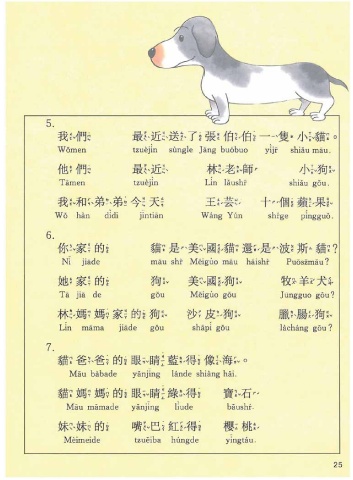 5.
我們 最近送了張伯伯一隻小貓。
Wǒmen tzuèjìn sùngle Jāng buóbuo yìjř shiǎu māu.
他們 最近 林老師 小狗。
Tāmen tzuèjìn Lín lǎushř shiǎu gǒu.
我和弟弟今天 王芸 十個蘋果。
Wǒ hàn dìdi jīntiān Wáng Yún shŕge píngguǒ.
6.
你家的 貓是美國貓還是波斯貓？
Nǐ jiāde māu shř Měiguó māu háishř Puōsz̄māu?
她家的 狗 美國狗 牧羊犬
Tā jiā de gǒu Měiguó gǒu
林媽媽家的狗 沙皮狗 臘腸狗？
Lín māma jiāde gǒu shāpí gǒu làcháng gǒu?
7.
貓爸爸的眼睛藍得像海。
Māu bàbade yǎnjīng lánde shiàng hǎi.
貓媽媽的眼睛綠得 寶石
Māu māmade yǎnjīng liùde bǎushŕ.
妹妹的 嘴巴紅得 櫻桃
Mèimeide tzuěiba húngde yīngtáu.
25